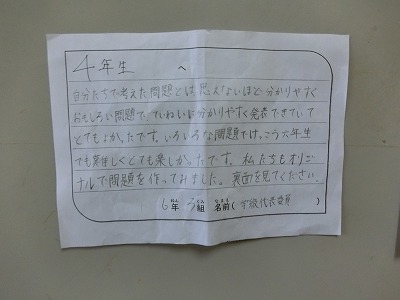 4年生 へ
自分たちで考えた問題とは思えないほど、分かりやすく
おもしろい問題で、ていねいに分かりやすく発表できていて
とてもよかったです。いろいろな問題では、けっこう六年生
でも難しくとても楽しかったです。私たちもオリジ
ナルで問題を作ってみました。裏面を見てください。
6年 3組 名前(学級代表委員 )